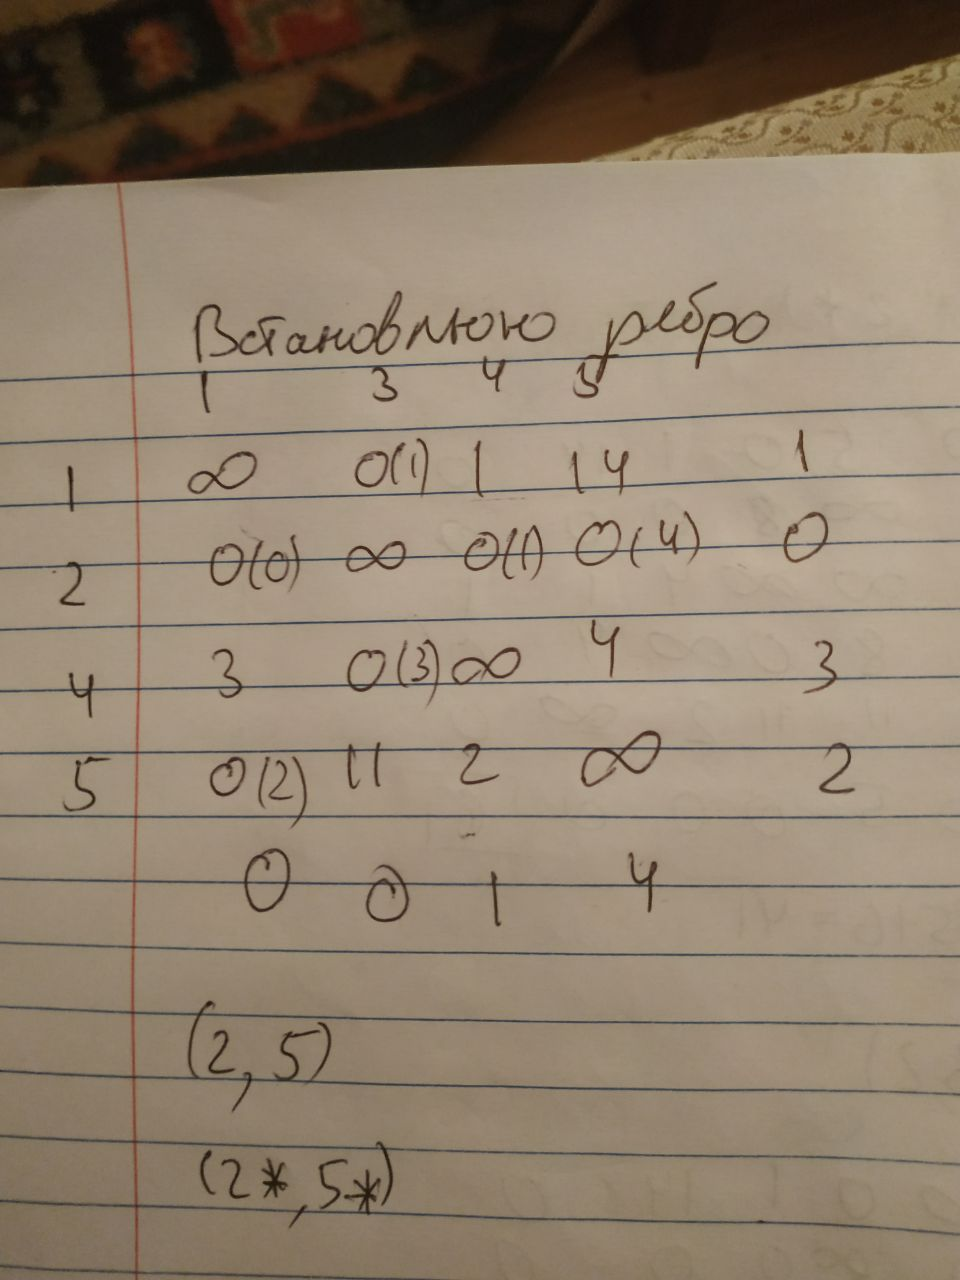 Встановлюю ребро
1 3 4 5
1 ∞ 0(1) 1 14 1
2 0(0) ∞ 0(1) 0(4) 0
4 3 0(3) ∞ 4 3
5 0(2) 11 2 ∞ 2
0 0 1 4
(2, 5)
(2*, 5*)